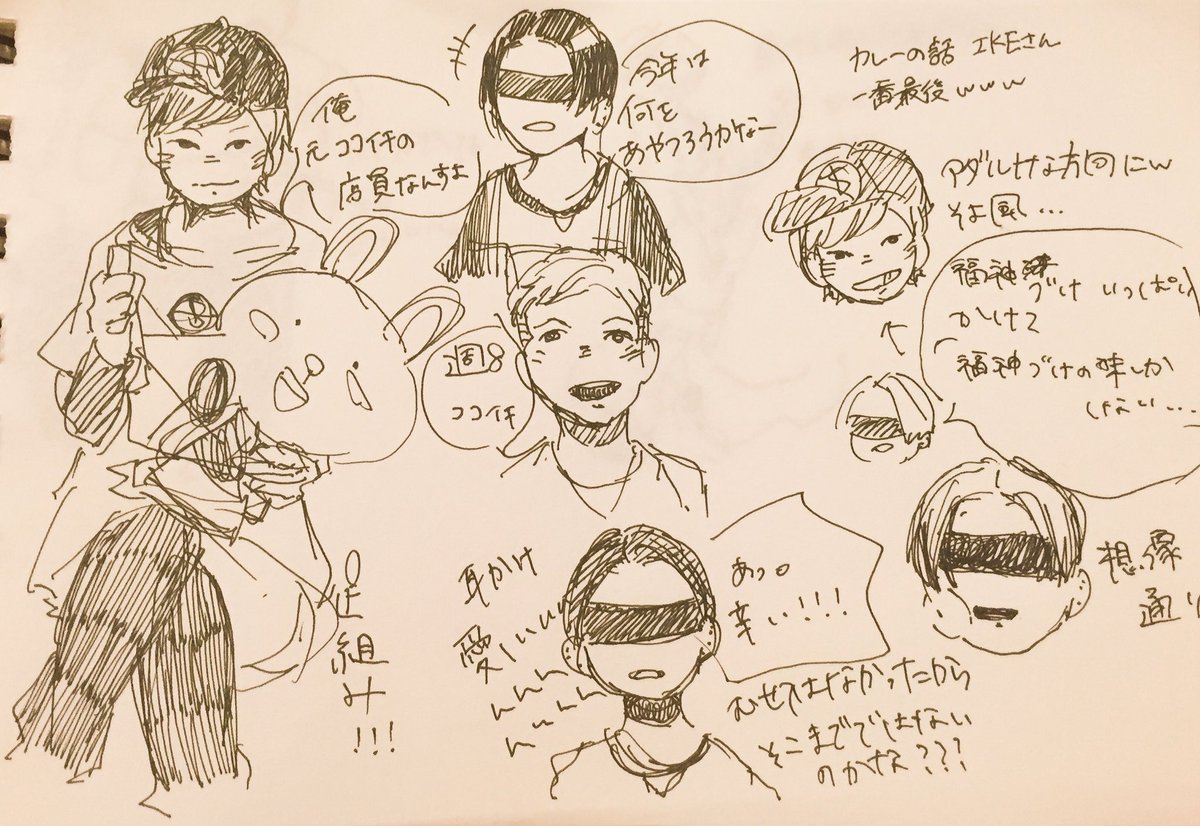 俺
元ココイチの
店員なんすよ
今年は
何を
あやつろうかなー
カレーの話 IKEさん
一番最後www
アダルトな方向にw
そよ風...
福神
づけ いっぱい
かけて
福神づけの味しか
しない...
週8
ココイチ
足組み!!!
耳かけ
愛しいいい
んんんん
あっ。
辛い!!!
むせてはなかったから
そこまでではない
のかな???
想像
通り